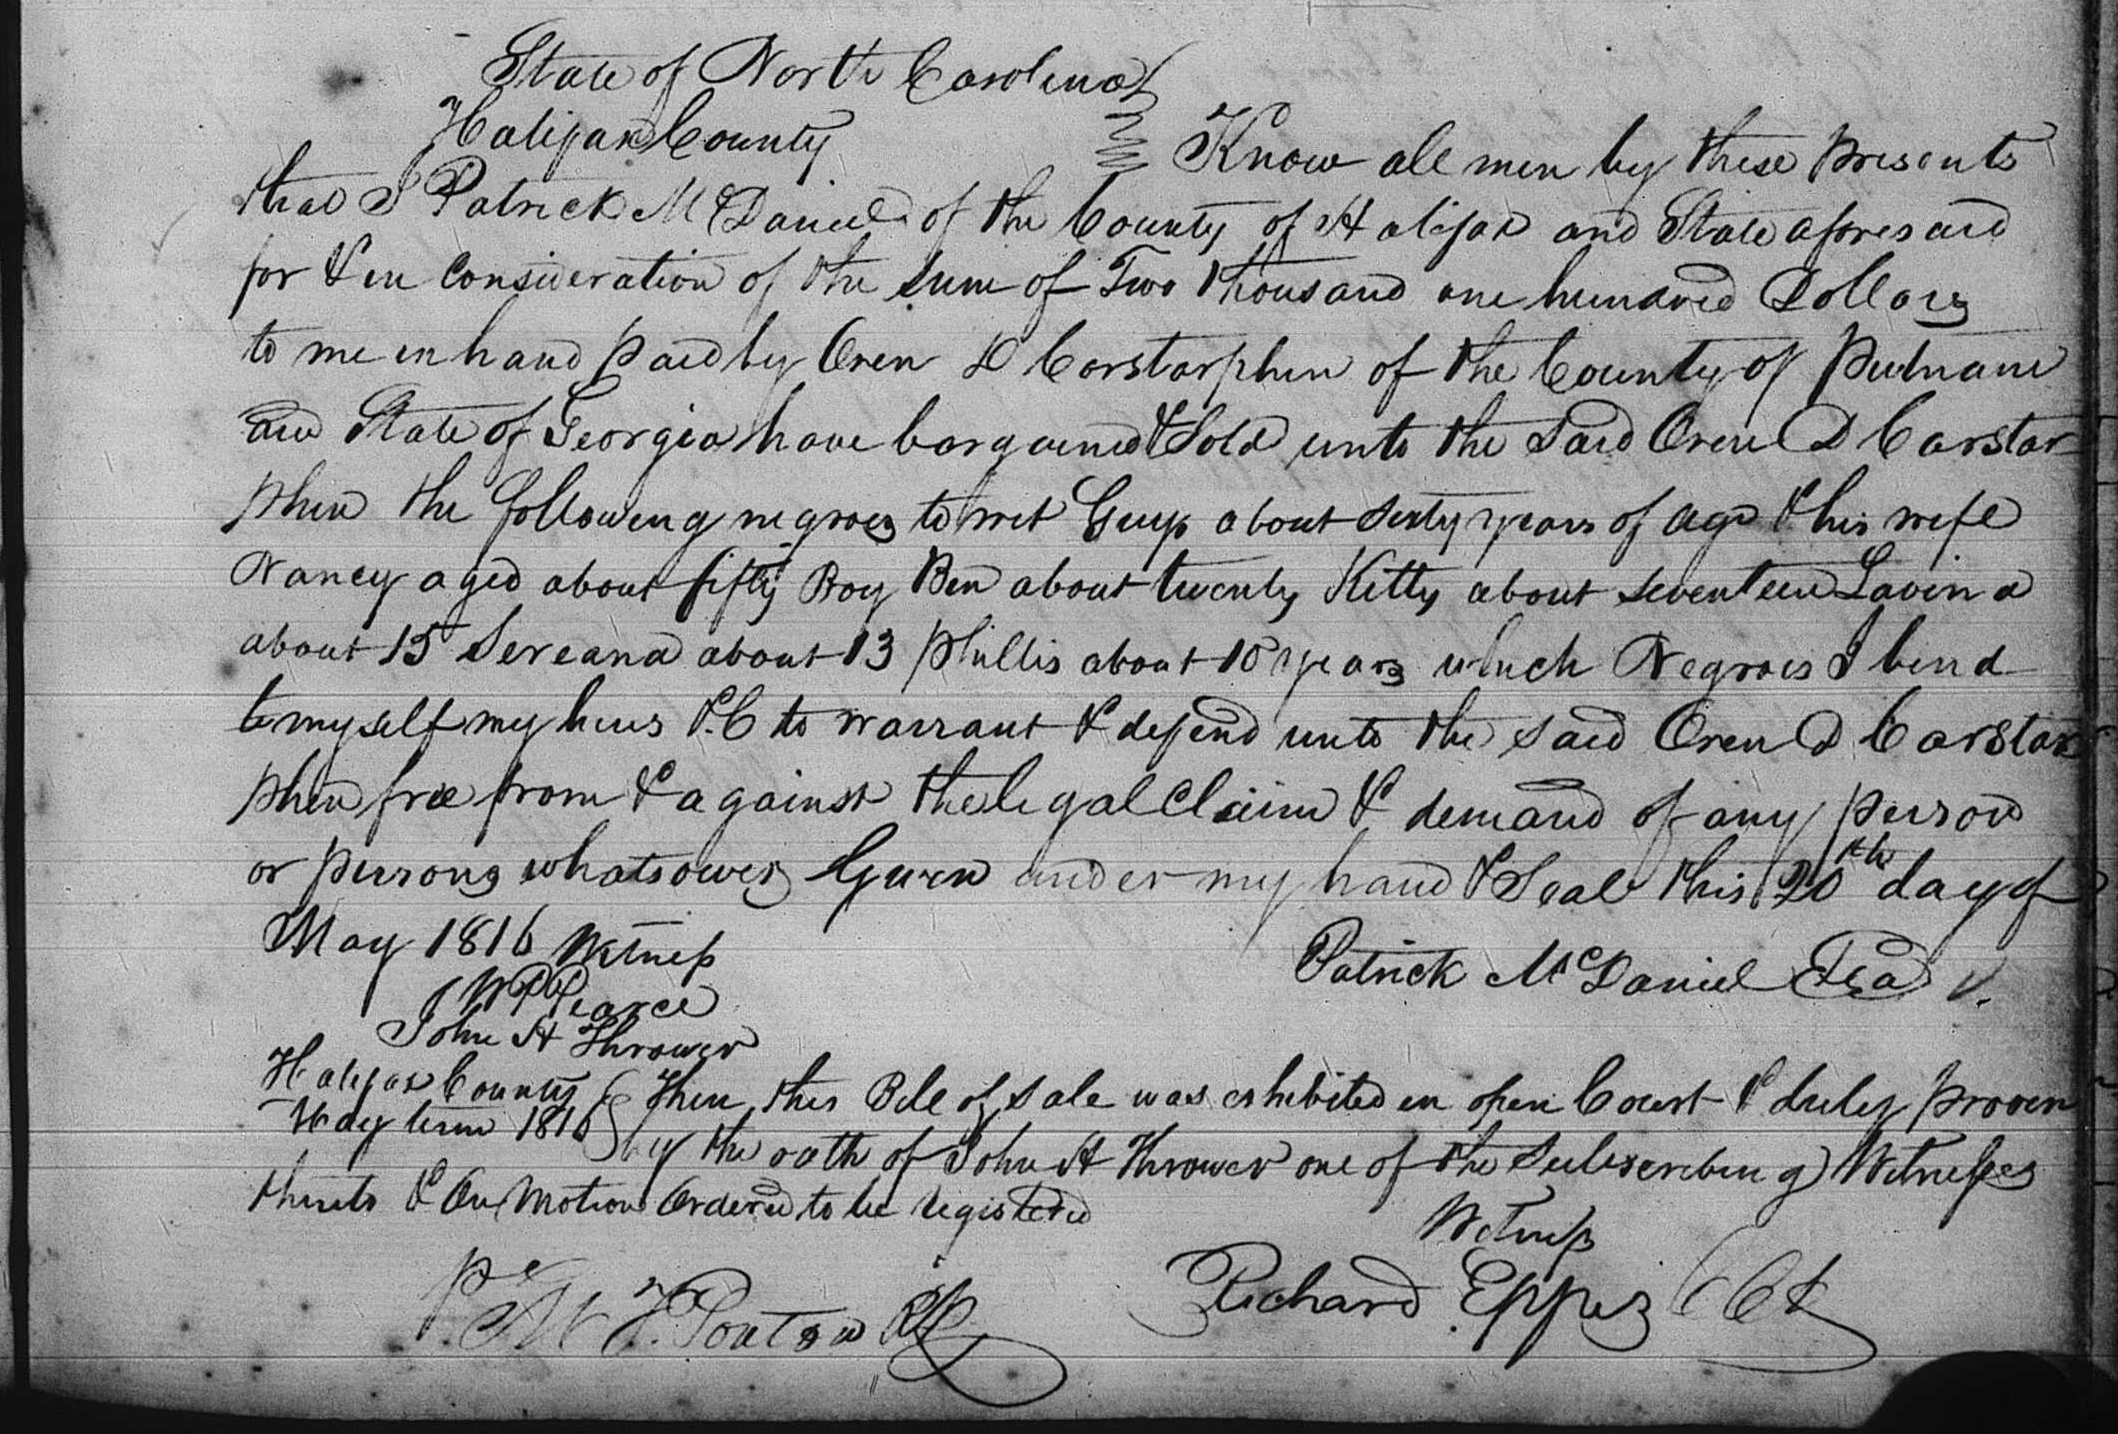 State of North Carolina
Halifax County Know all men by these presents
that I Patrick McDaniel of the County of Halifax and State aforesaid
for & in Consideration of the sum of Two thousand one hundred Dollars
to me in hand paid by Oren D Carstarphen of the County of Putnam
and State of Georgia have bargained & Sold unto the Said Oren D Carstar
phen the following negroes to wit Guy about sixty years of age & his wife
Nancy aged about fifty Boy Ben about twenty Kitty about seventeen Lavina
about 15 Sereana about 13 Phillis about 10 years which Negroes I bind
to myself my heirs &C to warrant & defend unto the said Oren D Carstar
phen free from & against the legal Claim & demand of any person
or persons whatsoever Given under my hand & Seal this 20th day of
May 1816 Witness
Patrick McDaniel Seal
W P Pearce
John H Thrower
Halifax County Then this Bill of Sale was exhibited in open Court & duly proven
May term 1816 by the oath of John H Thrower one of the Subscribing Witnesses
thereto & On Motion Ordered to be registered
Witness
Richard Eppes CCk
Pr M F Ponton